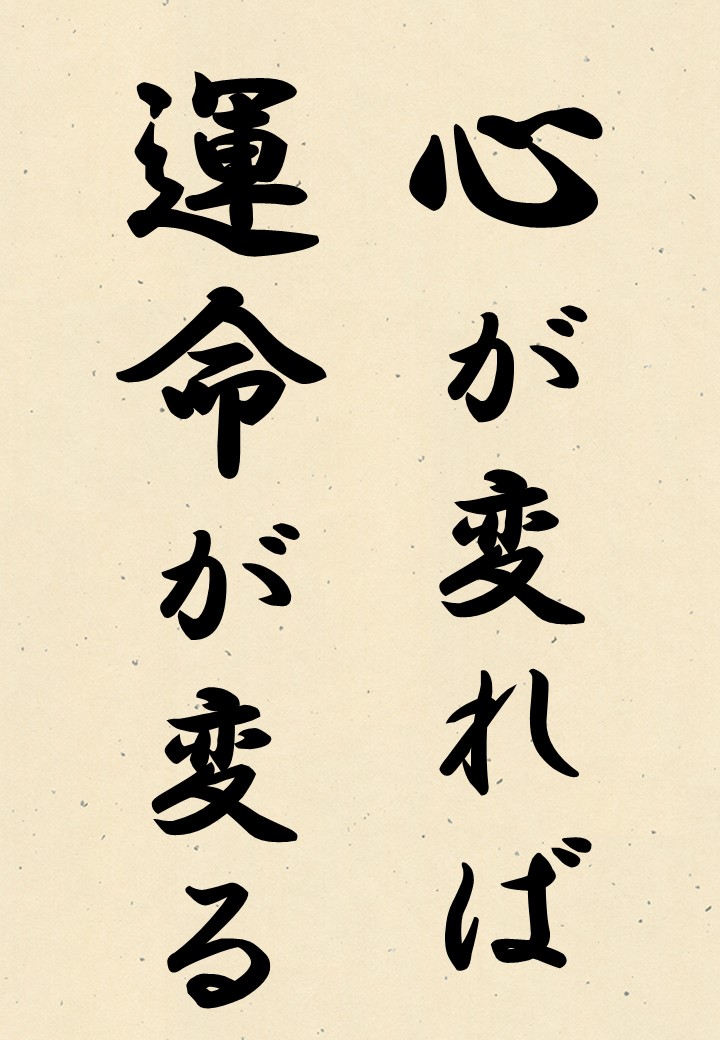 心が変れば
運命が変る